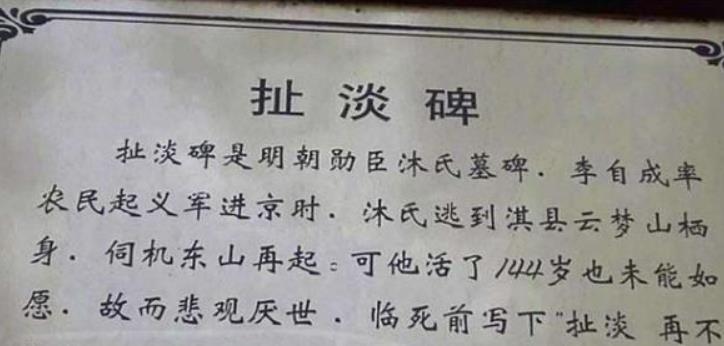 扯淡碑
扯淡碑是明朝勋臣沐氏墓碑．李自成率
农民起义军进京时．沐氏逃到淇县云梦山栖
身．伺机东山再起：可他活了144岁也未能如
愿．故而悲观厌世．临死前写下"扯淡 再不